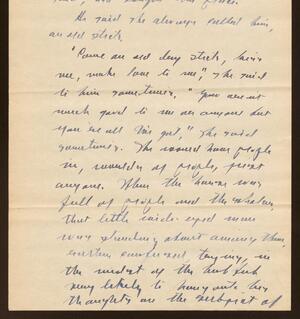 He said she always called him,
an old stick.
"Come an old dry stick, kiss
me, make love to me", she said
to him sometimes. "You are not
much good to me or anyone but
you are all I've got," she said
sometimes. She would have people
in, crowds of people, most
anyone. When the house was
full of people and the
that little eyed man
was standing about among them,
, trying, in
the midst of the hub bub
very likely to hang onto his
thoughts on the of